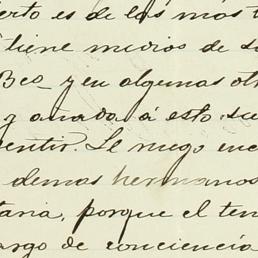 ierto es de las mas t
tiene medios de s
Bco_ y en algunas ot
y añada á esto su
sentir. Le ruego enc
demas hermanos
taria, porque el ten
argo de conciencia